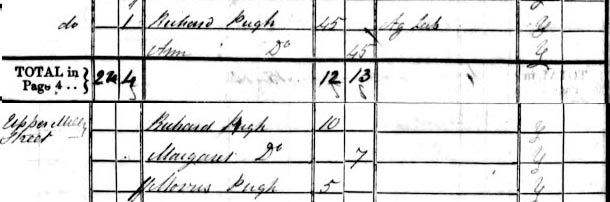 do 1 Richard Pugh 45 Ag Lab Y
Ann Do 45 Y
TOTAL in Page 4 .. } 4 12 13
Upper Street Richard Pugh 10 Y
Margaret Do 7 Y
Morris Pugh 5 Y